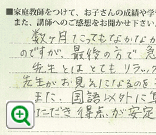 ■家庭教師をつけて、お子さんの成績や学
また、講師へのご感想をお聞かせ下さい。
数ヶ月たってもなかなか
のですが、最後の方で急
先生とはとてもリラッ
先生がお見えになるのを
また、国語以外に
ただき得点が安定